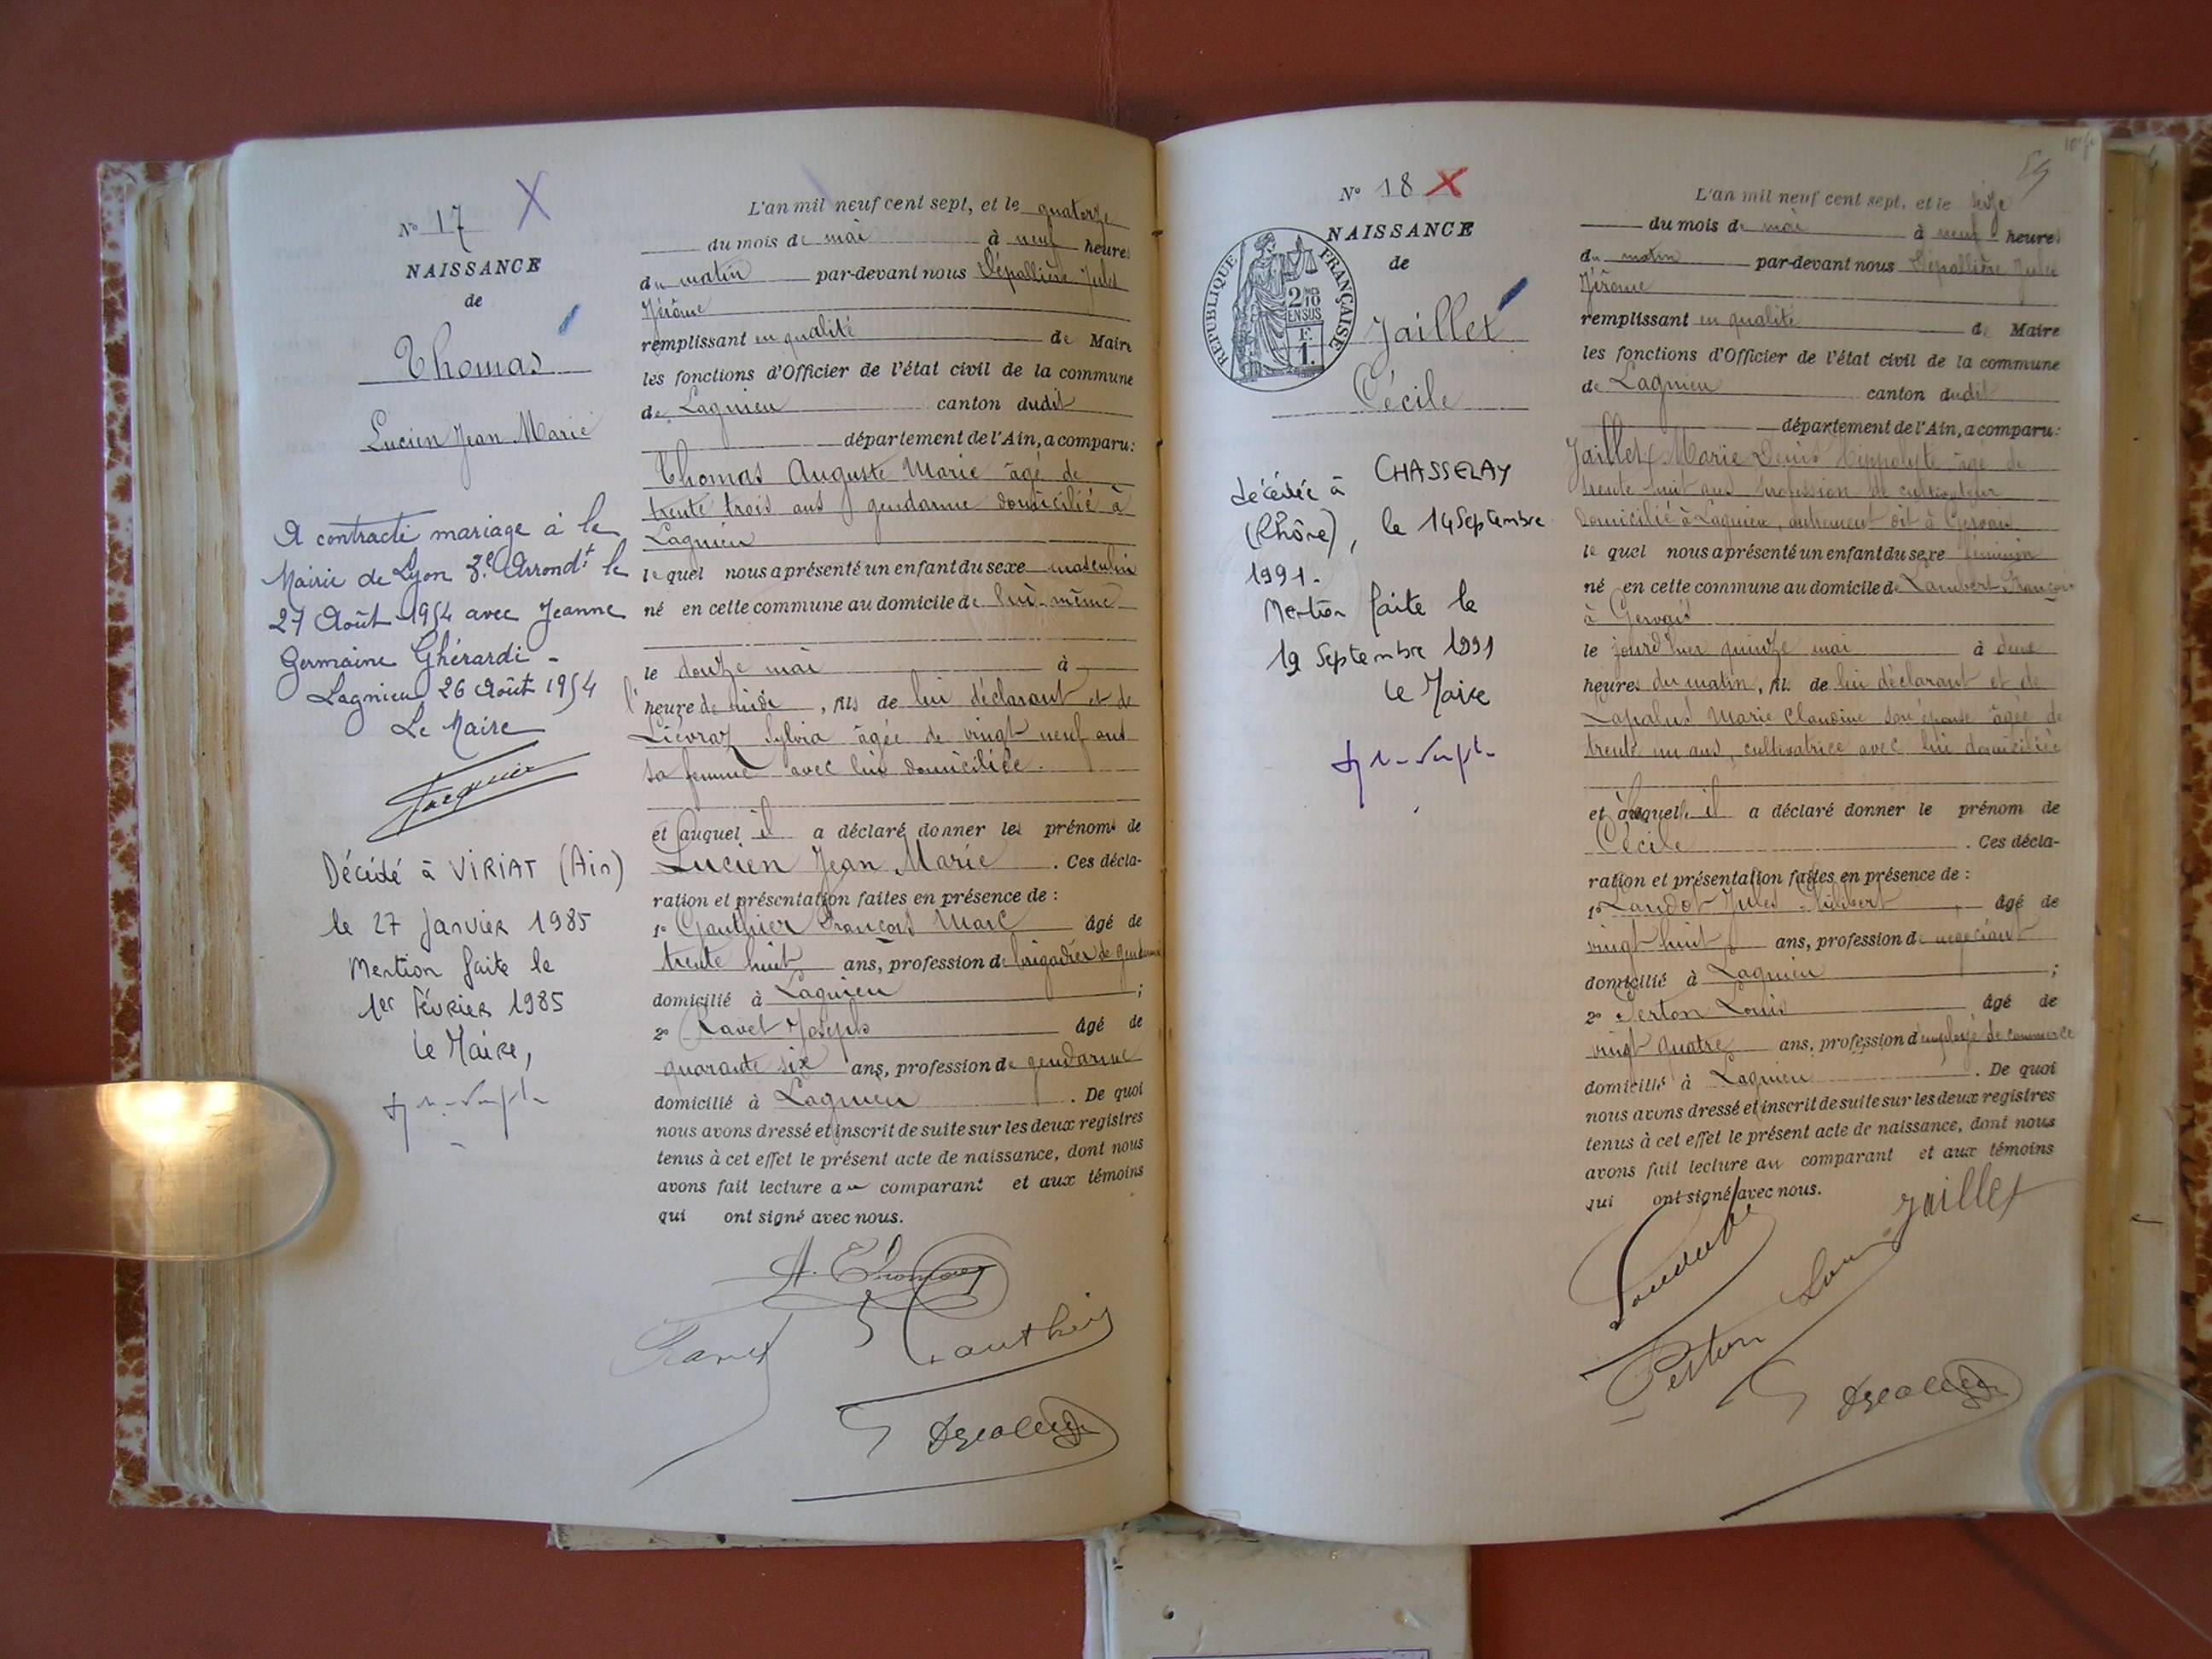 N° 17 X
NAISSANCE
de
Thomas
Lucien Jean Marie
A contracté mariage à la
Mairie de Lyon 3e Arrondt le
27 Août 1954 avec Jeanne
Germaine Ghérardi -
Lagnieu 26 Août 1954
Le Maire
Décédé à VIRIAT (Ain)
le 27 Janvier 1985
Mention faite le
1er Février 1985
Le Maire,
L'an mil neuf cent sept, et le quatorze
du mois de mai à neuf heures
du matin par-devant nous Dépallière Jules
Jérôme
remplissant en qualité de Maire
les fonctions d'Officier de l'état civil de la commune
de Lagnieu canton dudit
département de l'Ain, a comparu:
Thomas Auguste Marie âgé de
trente trois ans gendarme domicilié à
Lagnieu
lequel nous a présenté un enfant du sexe masculin
né en cette commune au domicile de lui-même
le douze mai à
l'heure de midi, fils de lui déclarant et de
Liévraz Sylvia âgée de vingt neuf ans
sa femme avec lui domiciliée.
et auquel il a déclaré donner les prénoms de
Lucien Jean Marie. Ces décla-
ration et présentation faites en présence de :
1° Gauthier François Marc âgé de
trente huit ans, profession de brigadier de gendarmerie
domicilié à Lagnieu ;
2° Ravet Joseph âgé de
quarante six ans, profession de gendarme
domicilié à Lagnieu. De quoi
nous avons dressé et inscrit de suite sur les deux registres
tenus à cet effet le présent acte de naissance, dont nous
avons fait lecture au comparant et aux témoins
qui ont signé avec nous.
A. Thomas
Ravet
Gauthier
N° 18 X
NAISSANCE
de
REPUBLIQUE FRANÇAISE
2/10
EN SUS
F.
1.
Jaillet
Cécile
décédée à CHASSELAY
(Rhône), le 14 Septembre
1991.
Mention faite le
19 Septembre 1991
Le Maire
L'an mil neuf cent sept, et le seize
du mois de mai à neuf heures
du matin par-devant nous Dépallière Jules
Jérôme
remplissant en qualité de Maire
les fonctions d'Officier de l'état civil de la commune
de Lagnieu canton dudit
département de l'Ain, a comparu:
Jaillet Marie Denis Hippolyte âgé de
trente huit ans profession de cultivateur
domicilié à Lagnieu, autrement dit à Gervais
lequel nous a présenté un enfant du sexe féminin
né en cette commune au domicile de Lambert François
à Gervais
le jourd'hier quinze mai à deux
heures du matin, fil. de lui déclarant et de
Lapalus Marie Claudine son épouse âgée de
trente un ans, cultivatrice avec lui domiciliée
et à laquelle il a déclaré donner le prénom de
Cécile. Ces décla-
ration et présentation faites en présence de :
1° Jules Philibert âgé de
vingt huit ans, profession de négociant
domicilié à Lagnieu ;
2° Perton Louis âgé de
vingt quatre ans, profession d'employé de commerce
domicilié à Lagnieu. De quoi
nous avons dressé et inscrit de suite sur les deux registres
tenus à cet effet le présent acte de naissance, dont nous
avons fait lecture au comparant et aux témoins
qui ont signé avec nous.
Jaillet
Perton Louis